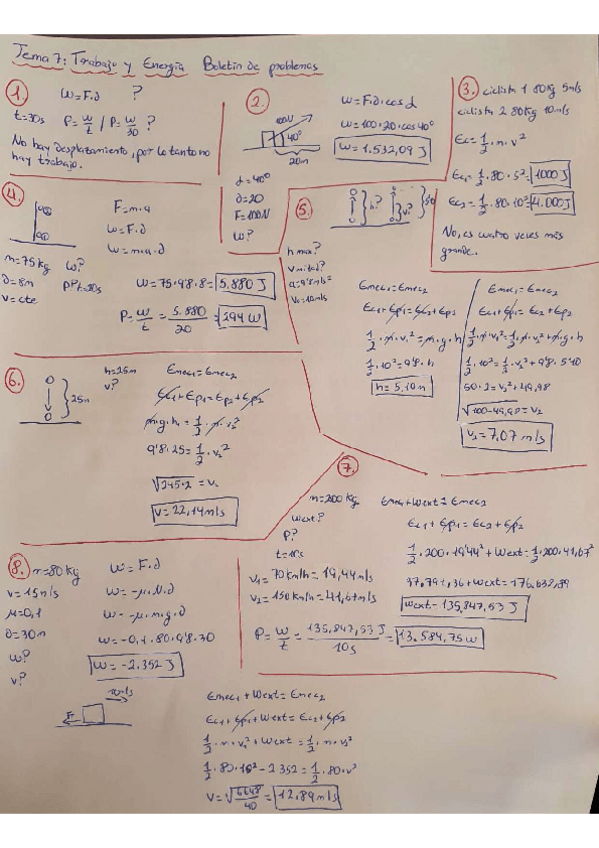 Tema 7: Trabajo y Energía Boletín de problemas
1.
W=F.d ?
t=30s P=W/t / P=W/30 ?
No hay desplazamiento, por lo tanto no
hay trabajo.
2.
100N
40°
20m
W=F.d.cosα
W=100.20.cos40°
W=1.532,09 J
α=40°
d=20
F=100N
W?
3. ciclista 1 80kg 5m/s
ciclista 2 80kg 10m/s
Ec=1/2.m.v²
Ec1=1/2.80.5²=1000J
Ec2=1/2.80.10²=4.000J
No, es cuatro veces más
grande.
4.
F=m.a
W=F.d
W=m.a.d
m=75kg W?
d=8m
v=cte
W=75.9'8.8=5.880 J
P=W/t=5.880/20=294 W
5.
h? v?
h max?
v mitad?
a=9'8m/s²
v₀=10m/s
Emec1=Emec2
Ec1+Ep1=Ec2+Ep2
1/2.m.v1²=m.g.h
1/2.10²=9'8.h
h=5,10m
Emec1=Emec2
Ec1+Ep1=Ec2+Ep2
1/2.m.v1²=1/2.m.v2²+m.g.h
50.2=v2²+49,98
√100-49,98=v2
v2=7,07 m/s
6.
25m
h=25m
v?
Emec1=Emec2
Ec1+Ep1=Ep2+Ep2
m.g.h1=1/2.m.v2²
9'8.25=1/2.v2²
√245.2=v2
v=22,14m/s
7.
m=200 kg
Wext?
P?
t=10s
v1=70km/h=19,44m/s
v2=150km/h=41,67m/s
Emec1+Wext=Emec2
Ec1+Ep1=Ec2+Ep2
1/2.200.19'44²+Wext=1/2.200.41,67²
37,791,36+Wext=173,638,89
Wext=135,847,53 J
P=W/t=135,847,53 J/10s=13.584,75W
8. m=80kg
v=15m/s
μ=0,1
d=30m
W?
v?
W=F.d
W=-μ.N.d
W=-μ.m.g.d
W=-0,1.80.9'8.30
W=-2.352 J
F
Emec1+Wext=Emec2
Ec1+Ep1+Wext=Ec2+Ep2
1/2.m.v1²+Wext=1/2.m.v2²
1/2.80.15²-2352=1/2.80.v²
v=√6648/40=12,89m/s